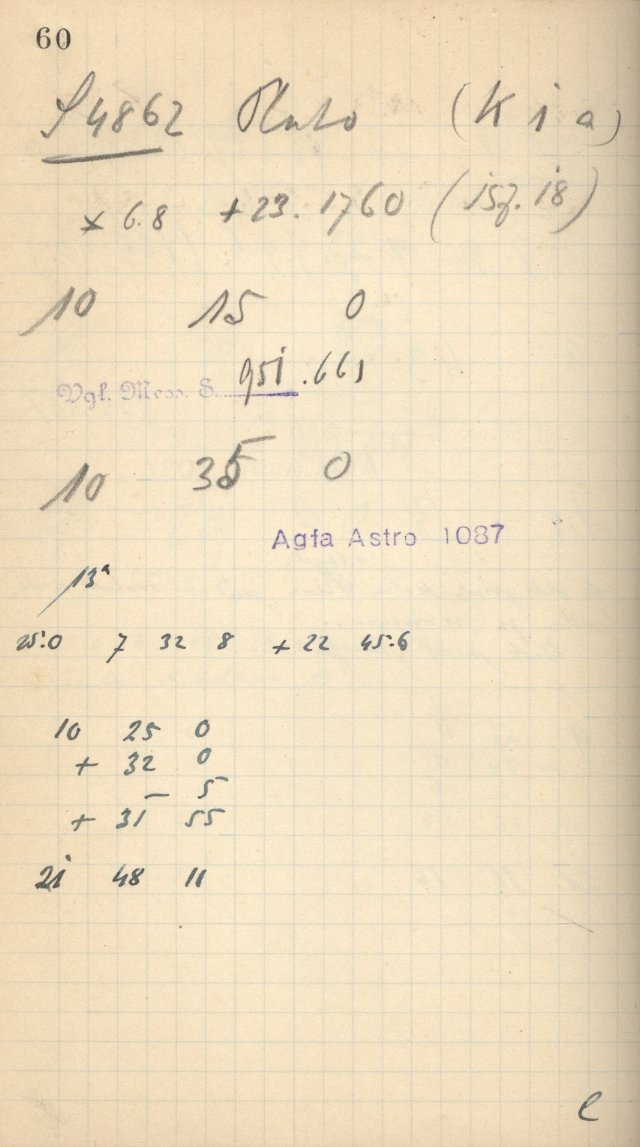 60
S4862 Pluto (Kia)
* 6.8 +23. 1760 (isz. 18)
10 15 0
Vgl. Mess. S. 951.661
10 35 0
Agfa Astro 1087
13ᵃ
25.0 7 32 8 + 22 45.6
10 25 0
+ 32 0
– 5
+ 31 55
21 48 11
e